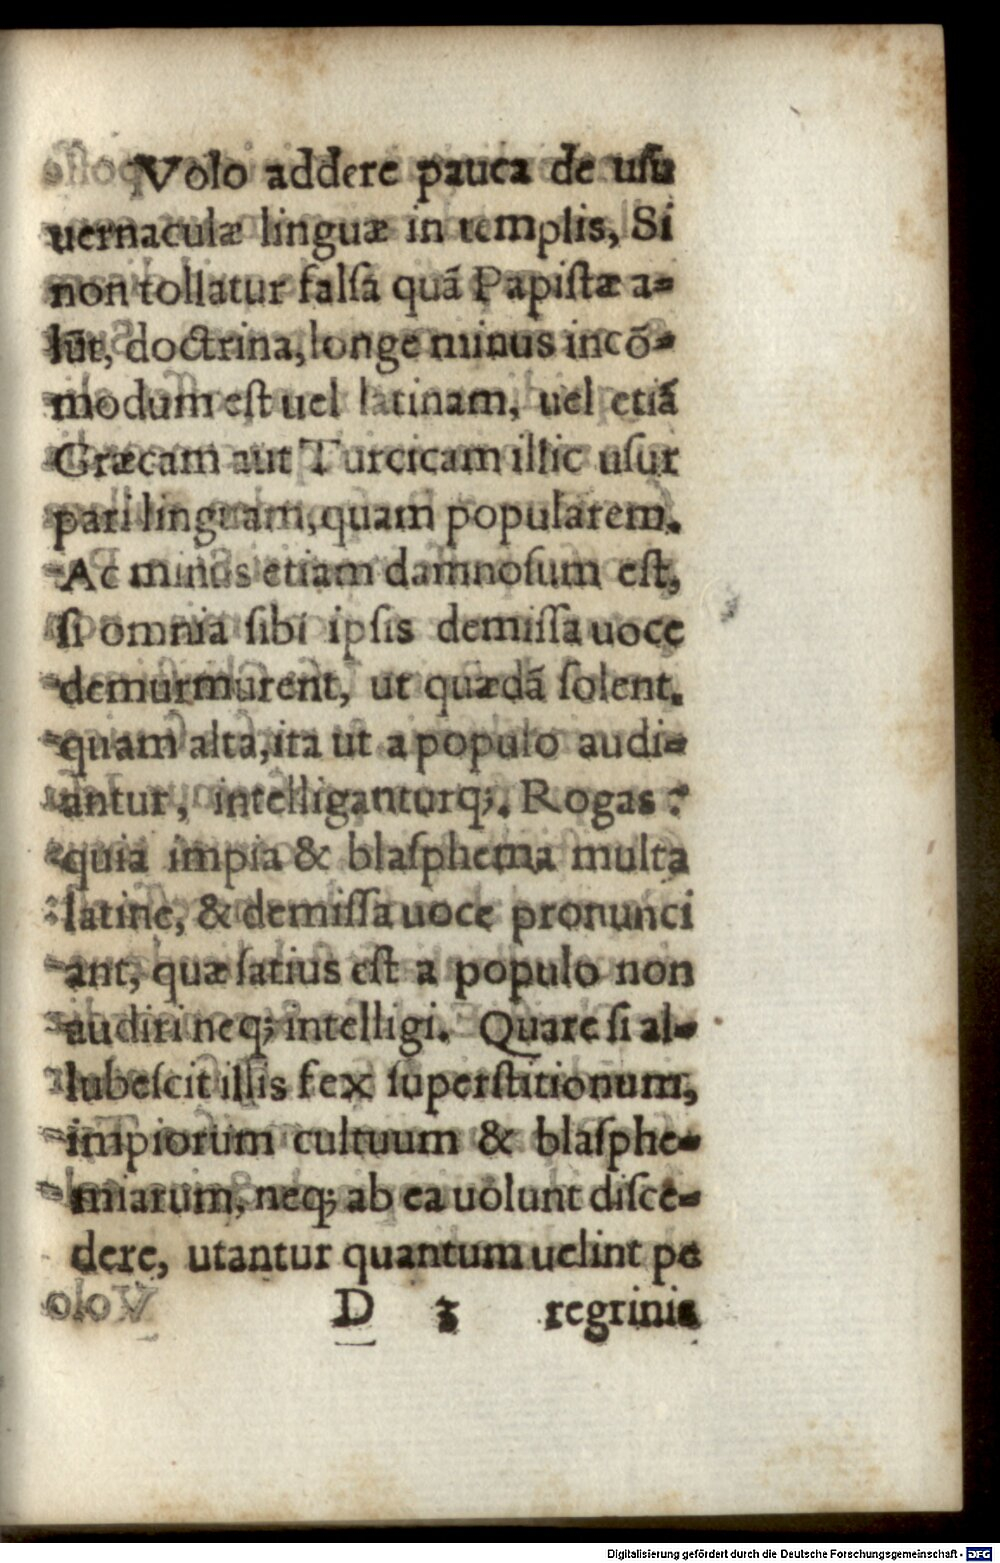 Volo addere pauca de uſu
uernaculæ linguæ in templis, Si
non tollatur falſa quã Papiſtæ a⸗
lũt, doctrina, longe minus incõ⸗
modum eſt uel latinam, uel etiã
Græcam aut Turcicam illic uſur
pari linguam, quam popularem.
Ac minus etiam damnoſum eſt,
ſi omnia ſibi ipſis demiſſa uoce
demurmurent, ut quædã ſolent.
quam alta, ita ut a populo audi⸗
antur, intelliganturq;. Rogas?
quia impia & blaſphema multa
latine, & demiſſa uoce pronunci
ant, quæ ſatius eſt a populo non
audiri neq; intelligi. Quare ſi al⸗
lubeſcit illis fex ſuperſtitionum,
impiorum cultuum & blaſphe⸗
miarum, neq; ab ea uolunt diſce⸗
dere, utantur quantum uelint pe
D 3 regrinis
Digitalisierung gefördert durch die Deutsche Forschungsgemeinschaft - DFG